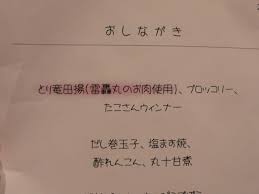 おしながき
とり竜田揚(雷轟丸のお肉使用)、ブロッコリー、
たこさんウィンナー
だし巻玉子、塩ます焼、
酢れんこん、丸十甘煮